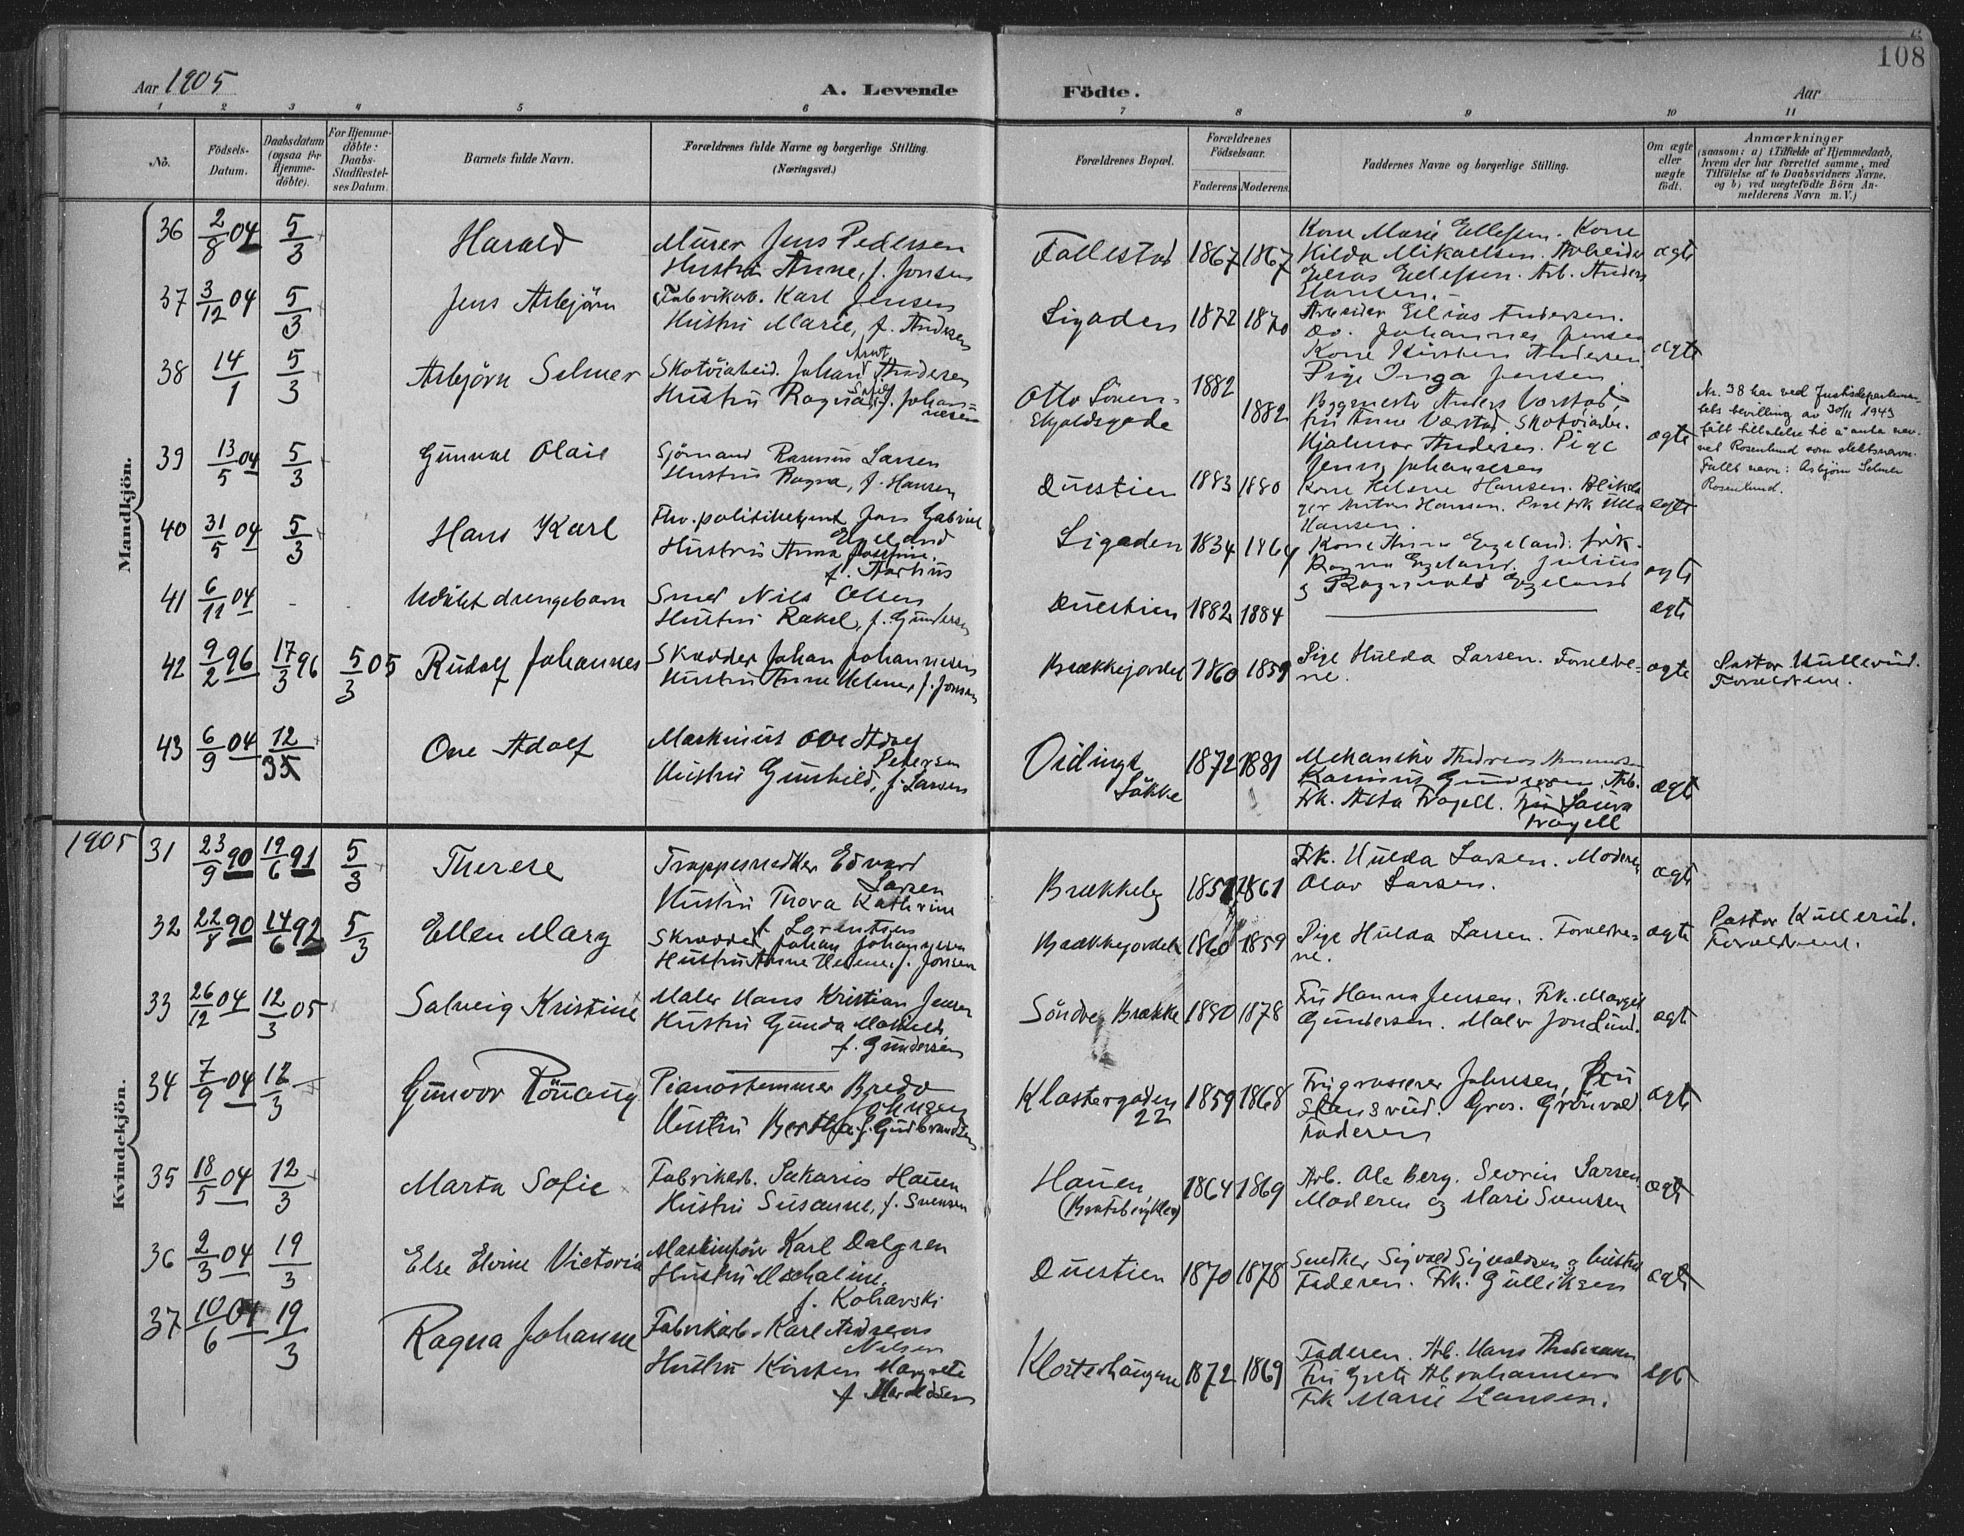 108
Aar 1905
A. Levende Födte.
Aar
1 2 3 4 5 6 7 8 9 10 11
No.
Födsels-
Datum.
Daabsdatum
(ogsaa for
Hjemme-
döbte).
For Hjemme-
döbte:
Daabs-
Stadfæstel-
ses Datum.
Barnets fulde Navn.
Forældrenes fulde Navne og borgerlige Stilling.
(Næringsvei.)
Forældrenes Bopæl.
Forældrenes
Födselsaar.
Faderens Moderens.
Faddernes Navne og borgerlige Stilling.
Om ægte
eller
uægte
födt.
Anmærkninger
(saasom: a) i Tilfælde af Hjemmedaab,
hvem der har forrettet samme, med
Tilföielse af to Daabsvidners Navne.
og b) ved uægtefödte Börn An-
melderens Navn m. V.)
Mandkjön.
36 2/8 04 5/3 Harald
Murer Jens Pedersen
Hustru Anne, f. Jensen
1867 1867
Kone Marie Ellefsen. Kone
Hilda Mikaelsen. Arbeider
Elias Ellefsen. Arb. Anders
Hansen.
ægte
37 3/12 04 5/3 Jens Asbjörn
Fabrikarb. Karl Jensen
Hustru Marie, f. Andersen
1872 1870
Arbeider Elias Andersen.
Do. Johannes Jensen
Kone Kirsten Andersen
Pige Inga Jensen
ægte
38 14/1 5/3 Asbjörn Selmer
Skotöiarbeid. Johan Arnt Andersen
Hustru Ragna f. Johan-
nesen
Otto Sören-
1882 1882
Anders Værstad,
fru Anne Værstad Skotöiarb.
Hjalmar Andersen. Pige
Jenny Johannesen
ægte
Nr. 38 har ved Justisdepartemen-
tets bevilling av 30/11 1943
fått tillatelse til å anta nav-
net Rosenlund som slektsnavn.
Fullt navn: Asbjörn Selmer
Rosenlund.
39 13/5 04 5/3 Gunval Olaic
Sjömand Rasmus Larsen
Hustru Ragna, f. Hansen
Duestien 1883 1880
Kone Helene Hansen.
Anton Hansen.
Hansen.
ægte
40 31/5 04 5/3 Hans Karl
Fhv. politibetjent Jens Gabriel
Egeland
Hustru Anna Josefine.
f. Martius
1834 1864
Kone Anna Egeland. frk.
Ragna Egeland. Julius
og Ragnvald Egeland
ægte
41 6/11 04 - Udöbt drengebarn
Smed Nils Olsen
Hustru Rakel, f. Gundersen
Duestien 1882 1884
ægte
42 9/2 96 17/3 96 5/3 05 Rudolf Johannes
Skrædder Johan Johannesen
Hustru Anne Helene, f. Jonsen
Brækkejordet 1860 1859
Pige Hulda Larsen. Forældre-
ne.
ægte
Pastor Kullerud.
Forældrene.
43 6/9 04 12/3 Ove Adolf
Maskinist Ove Adolf
Petersen
Hustru Gunhild, f. Larsen
1872 1881
Mekaniker Andreas
Rasmus Gundersen, Arb.
Frk. Asta Frogell. Fru Laura
Frogell
ægte
Kvindekjön.
1905 31 23/9 90 19/6 91 5/3 Therese
Trappesnedker Edvard
Larsen
Hustru Thora Kathrine
f. Lorentsen
Brækkeby 1861
Frk. Hulda Larsen. Moderen
Olav Larsen.
ægte
32 22/8 90 14/6 92 5/3 Ellen Mary
Skrædder Johan Johannesen
Hustru Anne Helene, f. Jonsen
Brækkejordet 1860 1859
Pige Hulda Larsen. Forældre-
ne.
ægte
Pastor Kullerud.
Forældrene.
33 26/12 04 12/3 05 Solveig Kristine
Maler Hans Kristian Jensen
Hustru Gunda Mathilde
f. Gundersen
Söndre Brække 1880 1878
Fru Hanna Jensen. Frk. Margit
Gundersen. Maler Jon Lund.
ægte
34 7/9 04 12/3 Gunvor Rönaug
Pianostemmer Bredo
Johnsen
Hustru Bertha f. Gudbrandsen
Klostergaden
22
1859 1868
Fru grosserer Johnsen, Fru
Stensrud. Gros. Grönvold
Faderen
ægte
35 18/5 04 12/3 Marta Sofie
Fabrikarb. Sakarias Hauen
Hustru Susanne, f. Svensen
Hauen
(Bratsbergkleven)
1864 1869
Arb. Ole Berg. Sevrin Larsen
Moderen og Marie Svensen
ægte
36 2/3 04 19/3 Else Elvine Victoria
Maskinför Karl Dalgren
Hustru Michaline.
f. Kohavski
Duestien 1870 1878
Snedker Sigvald Sigvaldsen og hustru
Faderen. Frk. Gulliksen
ægte
37 10/6 04 19/3 Ragna Johanne
Fabrikarb. Karl Andreas
Nilsen
Hustru Kirsten Margrete
f. Haraldsen
Klosterhaugene 1872 1869
Faderen. Arb. Hans Andersen
Fru Grete Abrahamsen
Frk Marie Hansen.
ægte